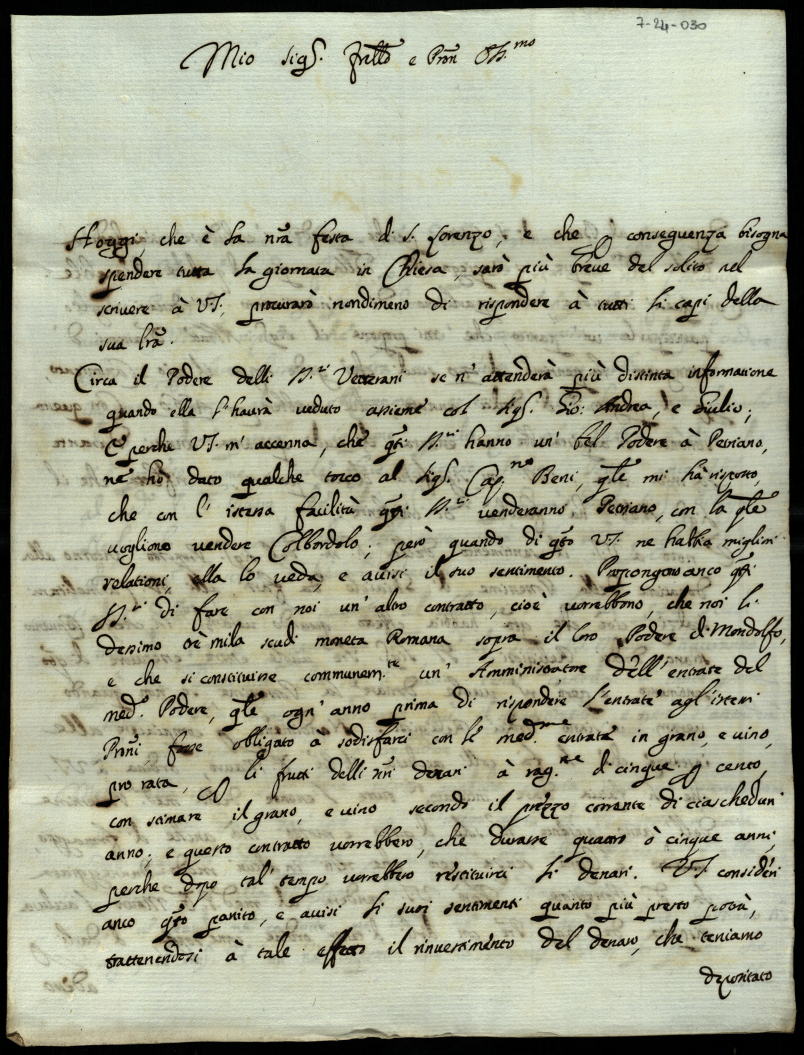 7-24-030
Mio Sig.r frello e Pron Oss.mo
Hoggi, che è la nra festa di S. Lorenzo, e che p conseguenza bisogna
spendere tutta la giornata in Chiesa, sarò più breve del solito nel
scrivere à V.S. procurarò nondimeno di rispondere à tutti li capi della
sua lra.
Circa il Podere delli SS.ri Vetterani se n' attenderà più distinta informatione
quando ella l'haurà veduto assieme col Sig.r Gio: Andrea, e Giulio;
E perche V.S. m' accenna, che qsti SS.ri hanno un' bel Podere à Petriano,
ne hò dato qualche tocco al Sig.r Cap.no Beni, qle mi hà risposto,
che con l' istessa facilità qsti SS.ri venderanno Petriano, con la qle
vogliono vendere Colbordolo; però quando di qsto V.S. ne habbia migliori
relationi, ella lo veda, e avisi il suo sentimento. Propongono anco qsti
SS.ri di fare con noi un' altro contratto, cioè vorrebbono, che noi li
dessimo trè mila scudi moneta Romana sopra il loro Podere di Mondolfo,
e che si constituisse communem.te un' Amministratore dell' entrate del
med.o Podere, qle ogn' anno prima di rispondere l'entrate agl'istessi
Proni, fosse obligato à sodisfarci con le med.me entrate in grano, e vino,
pro rata, p li frutti delli nri denari à rag.ne di cinque p cento,
con stimare il grano, e vino secondo il prezzo corrente di ciaschedun'
anno; e questo contratto vorrebbero, che durasse quattro ò cinque anni,
perche dopo tal' tempo vorrebbero restituirci li denari. V.S. consideri
anco qsto partito, e avisi li suoi sentimenti quanto più presto potrà,
trattenendosi à tale effetto il rinvestimento del denaro, che teniamo
depositato